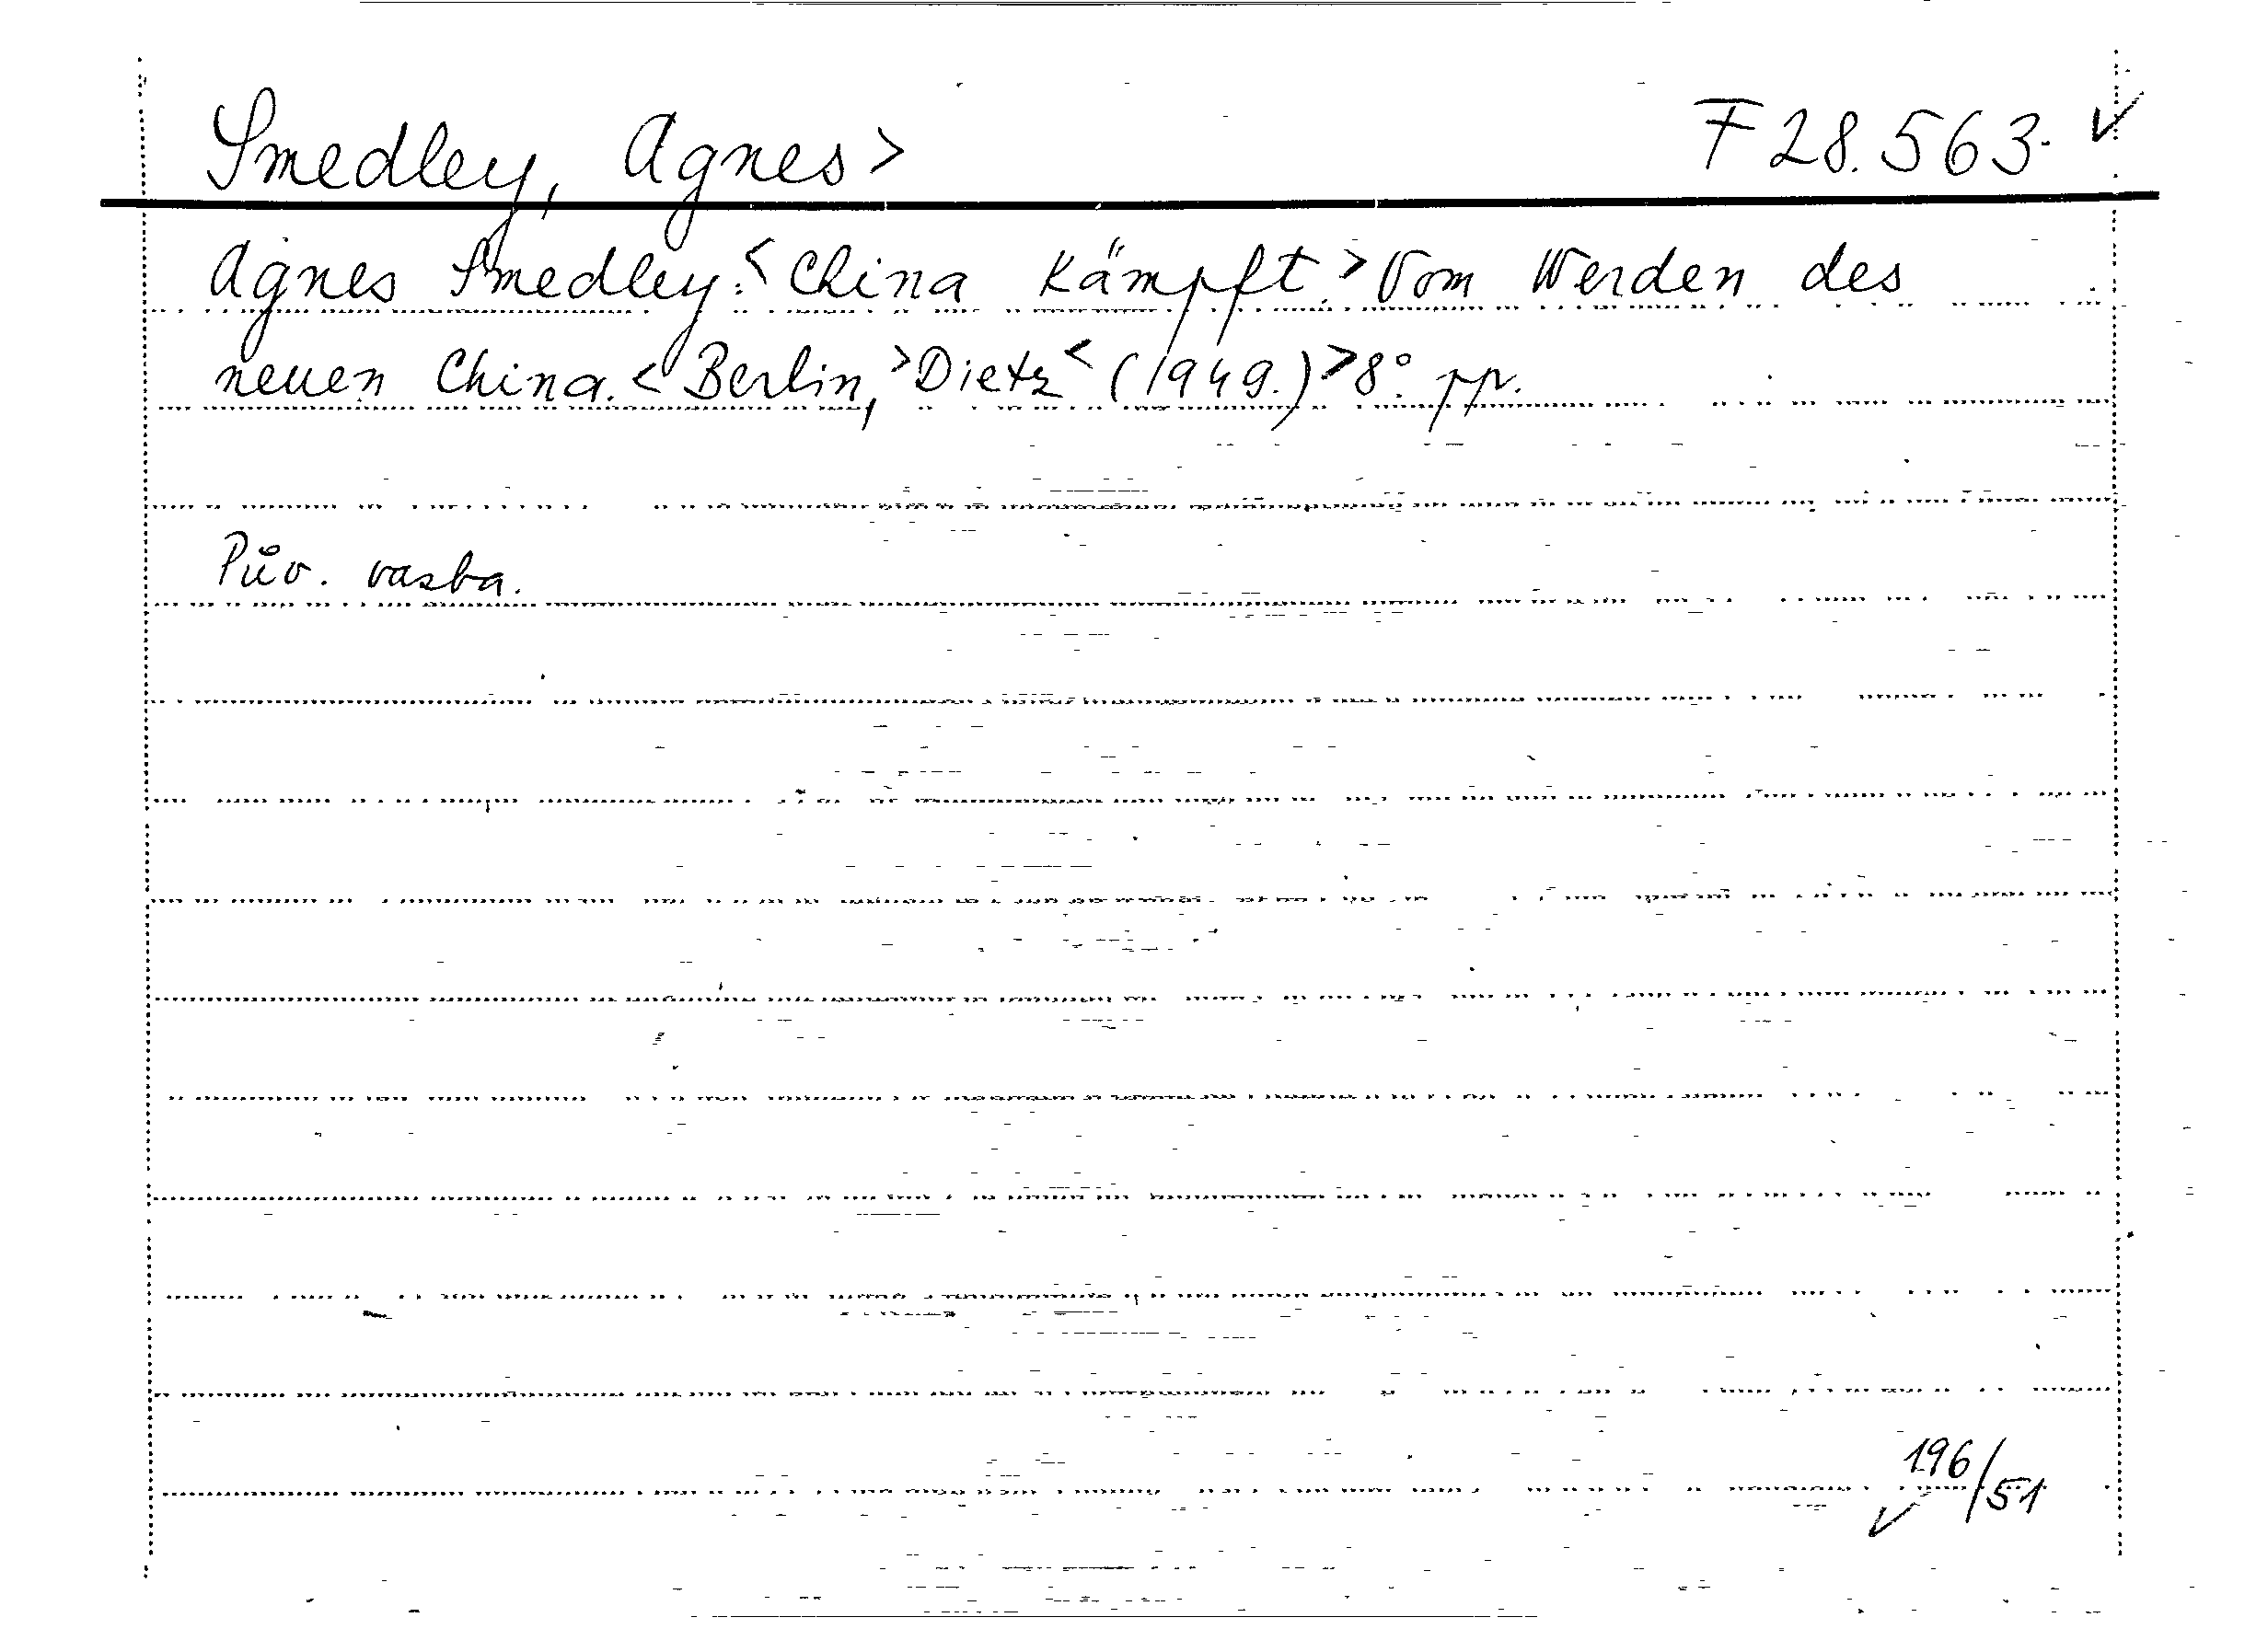 Smedley, Agnes> F 28.563. ✓
Agnes Smedley: <China Kämpft.> Vom Werden des
neuen China. <Berlin,> Dietz <(1949.)> 8° pp.
Pův. vazba.
196/51
✓